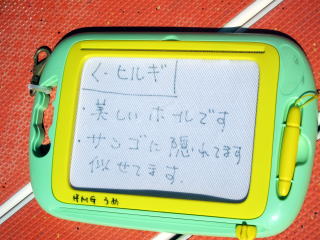 く・ヒルギ
・美しいホールです
・サンゴに隠れてます
似せてます。
HMG うめ